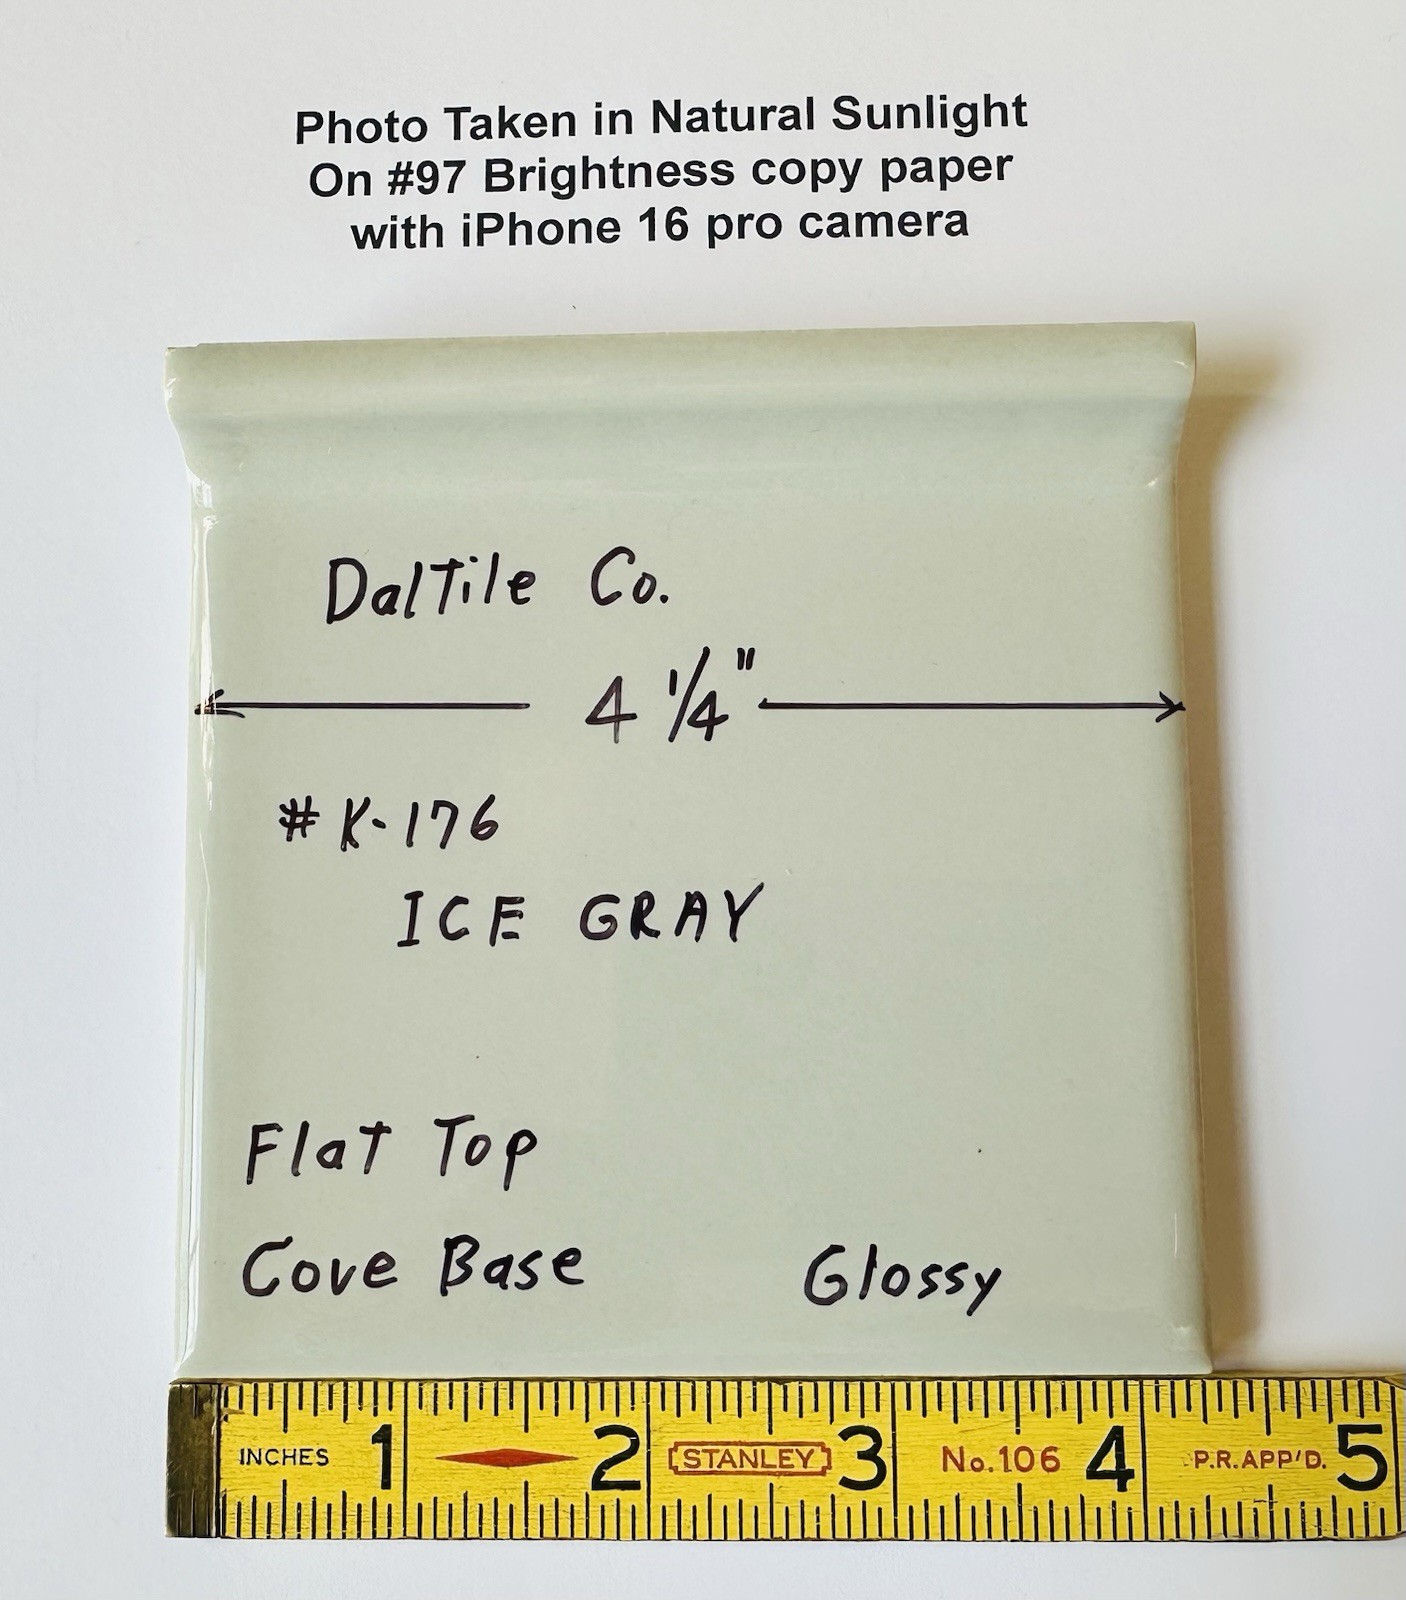 Photo Taken in Natural Sunlight
On #97 Brightness copy paper
with iPhone 16 pro camera
DalTile Co.
4 1/4"
# K-176
ICE GRAY
Flat Top
Cove Base
Glossy
INCHES 1 2 STANLEY 3 No. 106 4 P.R. APP'D. 5